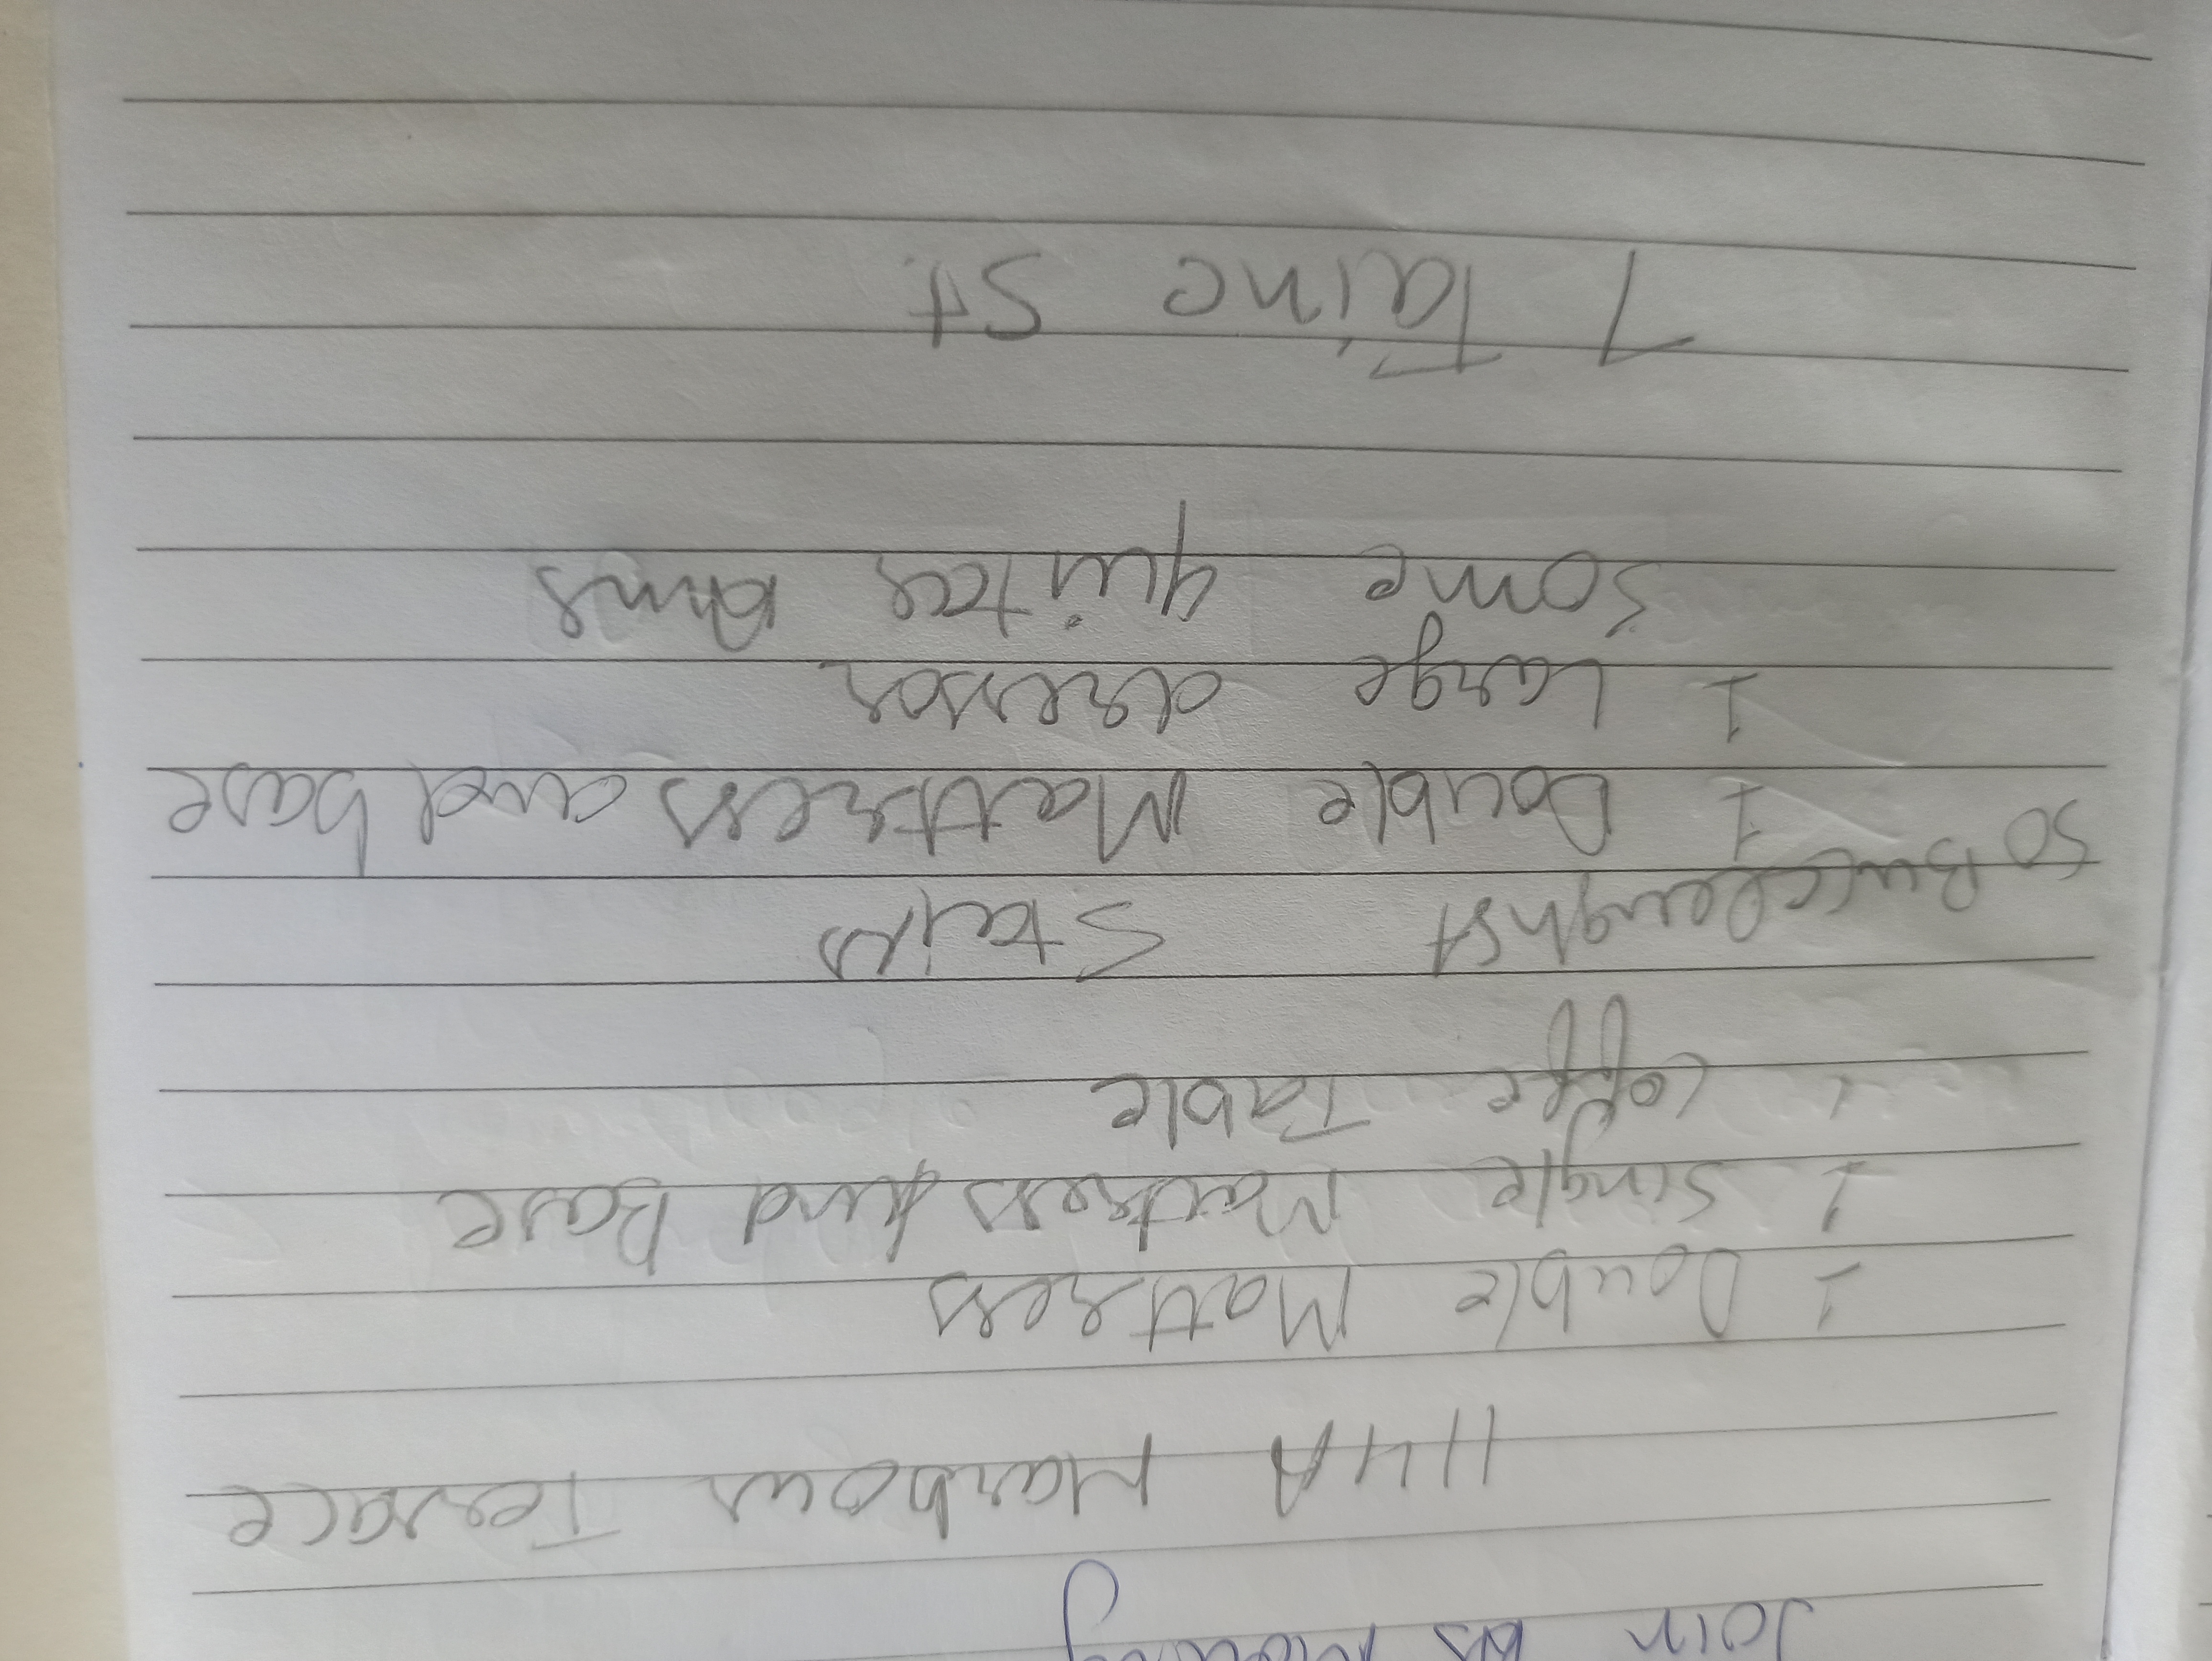 Join us
114A Harbour Terrace
1 Double Mattress
1 Single Mattress And Base
1 Coffe Table
50 Buccleugh St Stairs
1 Double Mattress and base
1 Large dresser
Some quitea
7 Taine St.